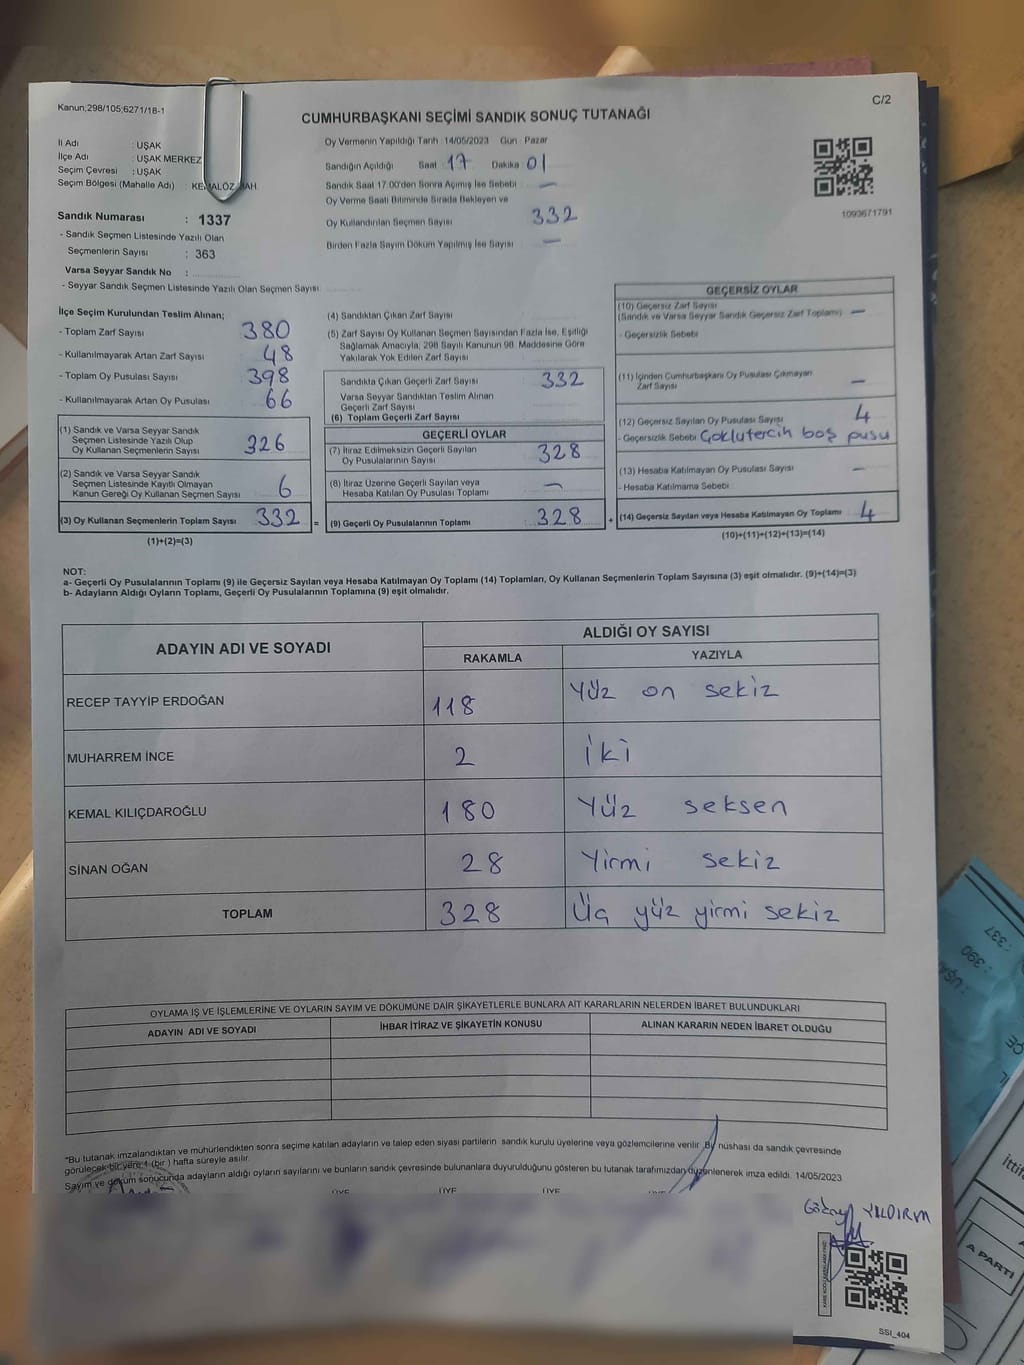 Kanun;298/105;6271/18-1
C/2
CUMHURBAŞKANI SEÇİMİ SANDIK SONUÇ TUTANAĞI
İl Adı : UŞAK
İlçe Adı : UŞAK MERKEZ
Seçim Çevresi : UŞAK
Seçim Bölgesi (Mahalle Adı) :
Sandık Numarası : 1337
- Sandık Seçmen Listesinde Yazılı Olan
Seçmenlerin Sayısı : 363
Varsa Seyyar Sandık No :
- Seyyar Sandık Seçmen Listesinde Yazılı Olan Seçmen Sayısı
Oy Vermenin Yapıldığı Tarih : 14/05/2023 Gün : Pazar
Sandığın Açıldığı Saat 17 Dakika 01
Sandık Saat 17:00'den Sonra Açılmış İse Sebebi : —
Oy Verme Saati Bitiminde Sırada Bekleyen ve
Oy Kullandırılan Seçmen Sayısı 332
Birden Fazla Sayım Döküm Yapılmış İse Sayısı : —
1093671791
İlçe Seçim Kurulundan Teslim Alınan;
- Toplam Zarf Sayısı 380
- Kullanılmayarak Artan Zarf Sayısı 48
- Toplam Oy Pusulası Sayısı 398
- Kullanılmayarak Artan Oy Pusulası 66
(1) Sandık ve Varsa Seyyar Sandık
Seçmen Listesinde Yazılı Olup
Oy Kullanan Seçmenlerin Sayısı 326
(2) Sandık ve Varsa Seyyar Sandık
Seçmen Listesinde Kayıtlı Olmayan
Kanun Gereği Oy Kullanan Seçmen Sayısı 6
(3) Oy Kullanan Seçmenlerin Toplam Sayısı 332 =
(1)+(2)=(3)
(4) Sandıktan Çıkan Zarf Sayısı
(5) Zarf Sayısı Oy Kullanan Seçmen Sayısından Fazla İse, Eşitliği
Sağlamak Amacıyla; 298 Sayılı Kanunun 98. Maddesine Göre
Yakılarak Yok Edilen Zarf Sayısı
Sandıkta Çıkan Geçerli Zarf Sayısı 332
Varsa Seyyar Sandıktan Teslim Alınan
Geçerli Zarf Sayısı
(6) Toplam Geçerli Zarf Sayısı
GEÇERLİ OYLAR
(7) İtiraz Edilmeksizin Geçerli Sayılan
Oy Pusulalarının Sayısı 328
(8) İtiraz Üzerine Geçerli Sayılan veya
Hesaba Katılan Oy Pusulası Toplamı —
(9) Geçerli Oy Pusulalarının Toplamı 328 +
GEÇERSİZ OYLAR
(10) Geçersiz Zarf Sayısı
(Sandık ve Varsa Seyyar Sandık Geçersiz Zarf Toplamı) —
- Geçersizlik Sebebi
(11) İçinden Cumhurbaşkanı Oy Pusulası Çıkmayan
Zarf Sayısı —
(12) Geçersiz Sayılan Oy Pusulası Sayısı 4
- Geçersizlik Sebebi Çoklutercih boş pusu
(13) Hesaba Katılmayan Oy Pusulası Sayısı —
- Hesaba Katılmama Sebebi
(14) Geçersiz Sayılan veya Hesaba Katılmayan Oy Toplamı 4
(10)+(11)+(12)+(13)=(14)
NOT:
a- Geçerli Oy Pusulalarının Toplamı (9) ile Geçersiz Sayılan veya Hesaba Katılmayan Oy Toplamı (14) Toplamları, Oy Kullanan Seçmenlerin Toplam Sayısına (3) eşit olmalıdır. (9)+(14)=(3)
b- Adayların Aldığı Oyların Toplamı, Geçerli Oy Pusulalarının Toplamına (9) eşit olmalıdır.
ADAYIN ADI VE SOYADI ALDIĞI OY SAYISI
RAKAMLA YAZIYLA
RECEP TAYYİP ERDOĞAN 118 Yüz on sekiz
MUHARREM İNCE 2 iki
KEMAL KILIÇDAROĞLU 180 Yüz seksen
SİNAN OĞAN 28 Yirmi sekiz
TOPLAM 328 Üç yüz yirmi sekiz
OYLAMA İŞ VE İŞLEMLERİNE VE OYLARIN SAYIM VE DÖKÜMÜNE DAİR ŞİKAYETLERLE BUNLARA AİT KARARLARIN NELERDEN İBARET BULUNDUKLARI
ADAYIN ADI VE SOYADI İHBAR İTİRAZ VE ŞİKAYETİN KONUSU ALINAN KARARIN NEDEN İBARET OLDUĞU
"Bu tutanak imzalandıktan ve mühürlendikten sonra seçime katılan adayların ve talep eden siyasi partilerin sandık kurulu üyelerine veya gözlemcilerine verilir. Bir nüshası da sandık çevresinde
görülecek bir yere 1 (bir) hafta süreyle asılır.
Sayım ve döküm sonucunda adayların aldığı oyların sayılarını ve bunların sandık çevresinde bulunanlara duyurulduğunu gösteren bu tutanak tarafımızdan düzenlenerek imza edildi. 14/05/2023
ÜYE ÜYE ÜYE
YILDIRIM
SSI_404
: 337
: 390
A PARTİ